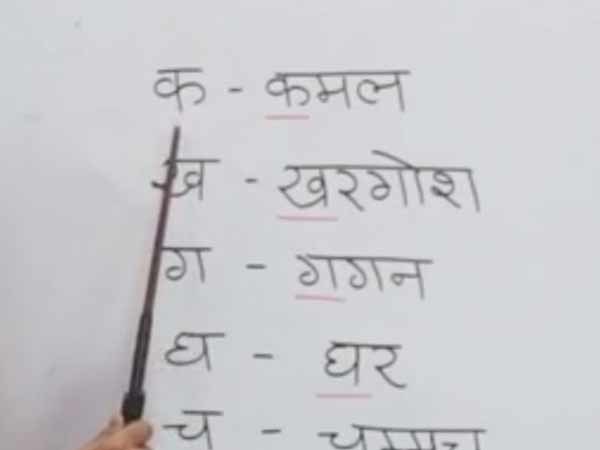 क - कमल
ख - खरगोश
ग - गगन
घ - घर
च - चम्मच